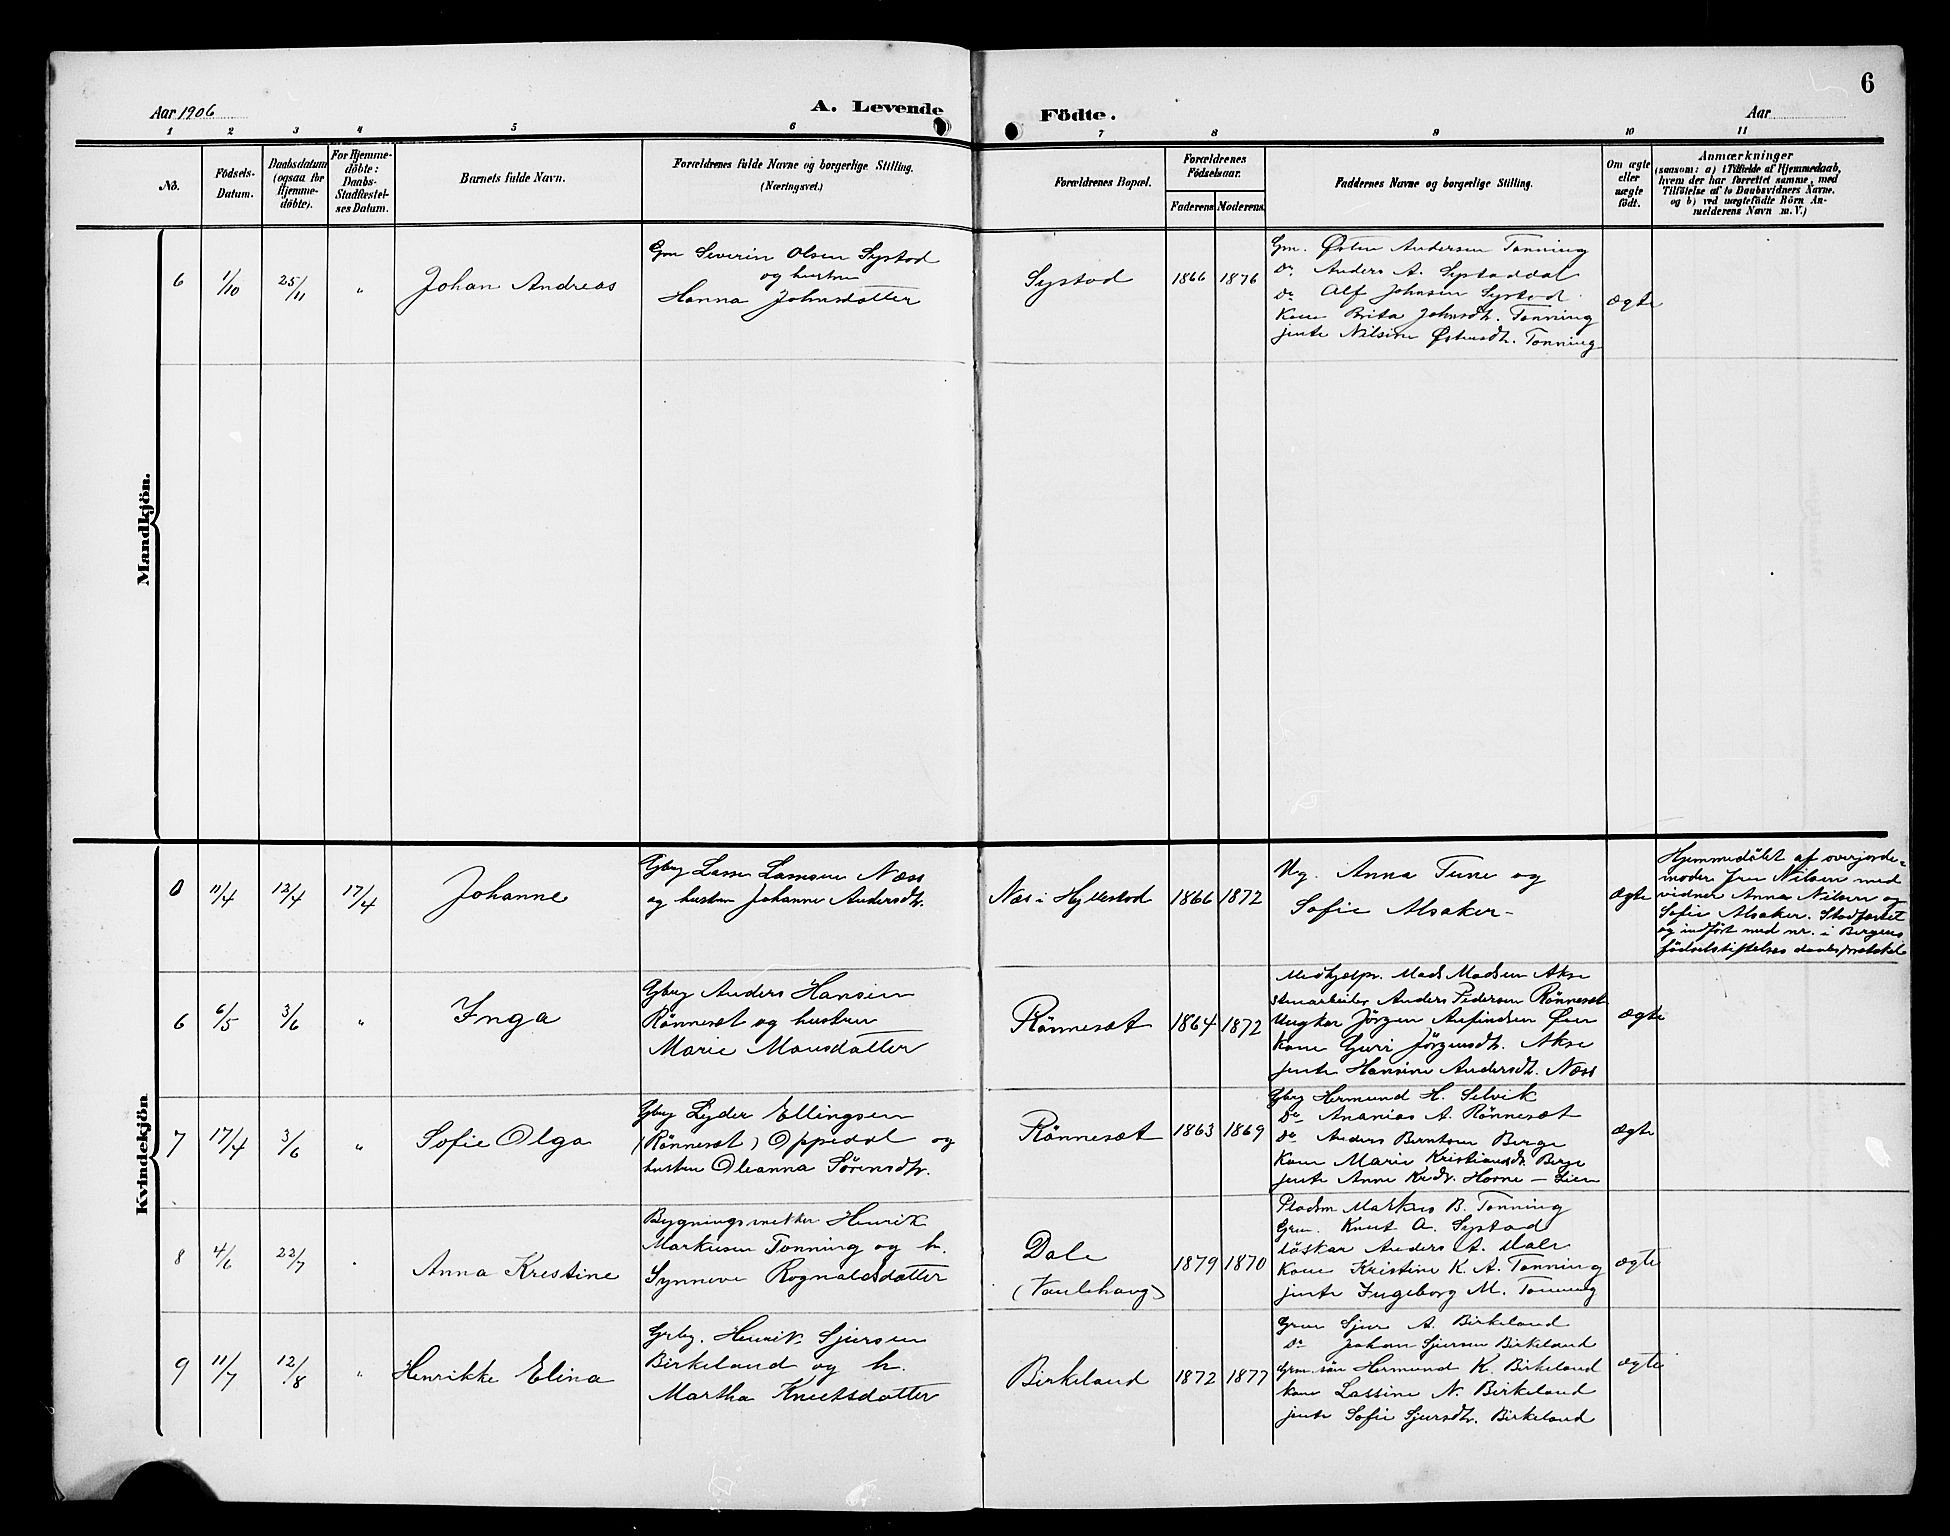 6
Aar 1906
A. Levende
Födte.
Aar
1 2 3 4 5 6 7 8 9 10 11
No.
Födsels-
Datum.
Daabsdatum
(ogsaa for
Hjemme-
døbte).
For Hjemme-
døbte:
Daabs-
Stadfæstel-
ses Datum.
Barnets fulde Navn.
Forældrenes fulde Navne og borgerlige Stilling.
(Næringsvei.)
Forældrenes Bopæl.
Forældrenes
Födselsaar.
Faderens. Moderens.
Faddernes Navne og borgerlige Stilling.
Om ægte
eller
uægte
født.
Anmærkninger
(saasom: a) i Tilfælde af Hjemmedaab,
hvem der har forrettet samme, med
Tilføielse af to Daabsvidners Navne,
og b) ved uægtefødte Börn An-
melderens Navn m. V.)
Mandkjön.
6 1/10 25/11 "
Johan Andreas
Gm Severin Olsen Systad
og hustru
Hanna Johnsdatter
Systad
1866 1876
Gm. Østen Andersen Tonning
Do Anders A. Systaddal
Do Alf Johnsen Systad
Kone Brita Johnsdtr. Tonning
jente Nilsine Østensdtr. Tonning
ægte
Kvindekjön
0 11/4 12/4 17/4
Johanne
Gbrg Lasse Lassesen Næss
og hustru Johanne Andersdtr.
Næs i Hyllestad
1866 1872
Ug. Anna Tune og
Sofie Alsaker -
ægte
Hjemmedøbt af overjorde=
moder fru Nilsen med
vidner Anna Nilsen og
Sofie Alsaker. Stadfæstet
og indført med nr. i Bergens
fødselsstiftelses daabsprotokol
6 6/5 3/6 "
Inga
Gbrg Anders Hansen
Rönnesæt og hustru
Marie Monsdatter
Rönnesæt
1864 1872
Medhjælpr. Mads Madsen Akse
stenarbeider Anders Pedersen Rönnesæt
Ungkar Jörgen Arfindsen Øen
Kone Guri Jörgensdtr. Akse
jente Hansine Andersdtr. Næss
ægte
7 17/4 3/6 "
Sofie Olga
Gbrg Lyder Ellingsen
(Rönnesæt) Oppedal og
hustru Oleanna Sörensdtr.
Rönnesæt
1863 1869
Gbrg Hermund H. Selvik
Do Ananias A. Rönnesæt
Do Anders Berntsen Berge
Kone Marie Kristiansdtr. Berge
jente Anne Horne - Lien
ægte
8 4/6 22/7 "
Anna Krestine
Bygnings Henrik
Markusen Tonning og h.
Synneve Rognaldsdatter
Dale
(Vaulehaug)
1879 1870
Pladsm Markus B. Tonning
Grm. Knut A. Systad
löskar Anders A. Dale
Kone Kristine K. A. Tonning
jente Ingeborg M. Tonning
ægte
9 11/7 12/8 "
Henrikke Elina
Grbg. Henrik Sjursen
Birkeland og h.
Martha Knutsdatter
Birkeland
1872 1877
Grm Sjur A. Birkeland
Do Johan Sjursen Birkeland
Grm.sön Hermund K. Birkeland
kone Lassine N. Birkeland
jente Sofie Sjursdtr. Birkeland
ægte